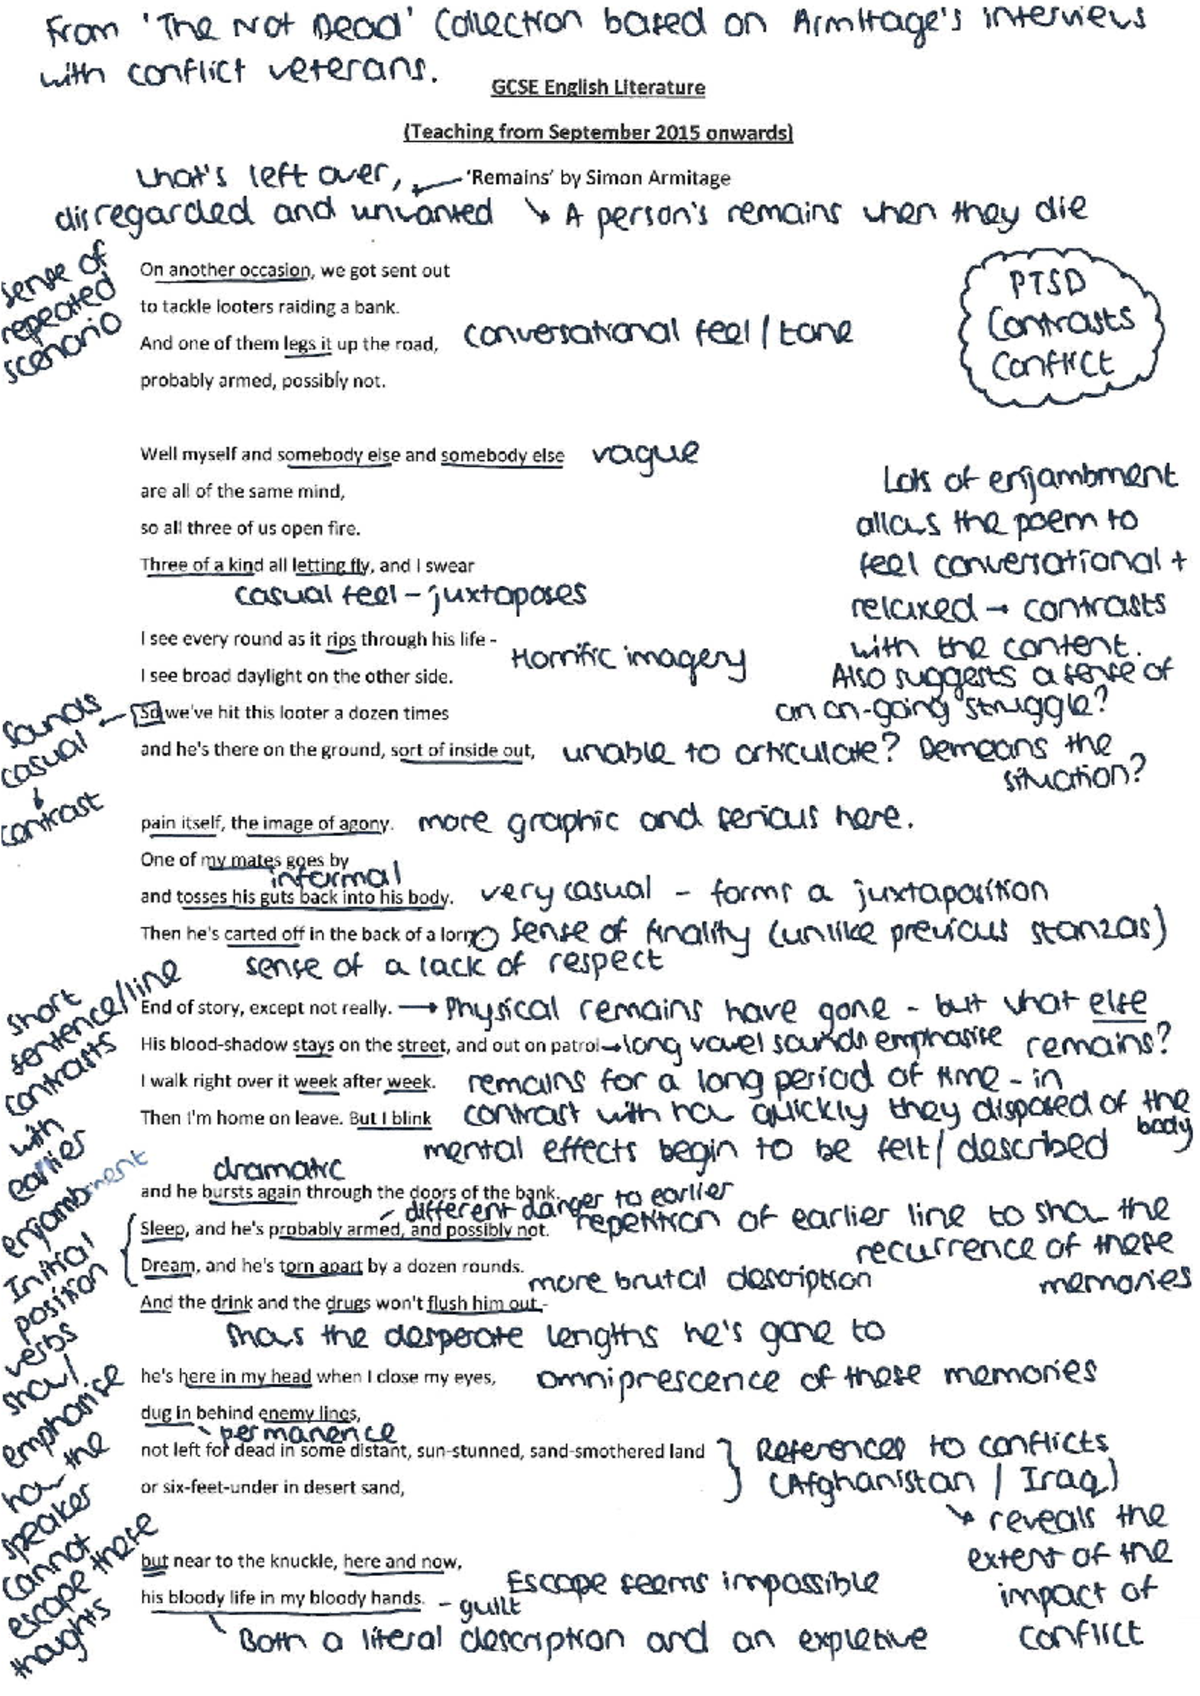 From 'The Not Dead' Collection based on Armitage's interviews
with conflict veterans.
GCSE English Literature
(Teaching from September 2015 onwards)
what's left over,
'Remains' by Simon Armitage
disregarded and unwanted
A person's remains when they die
sense of
repeated
scenario
On another occasion, we got sent out
to tackle looters raiding a bank.
And one of them legs it up the road,
conversational feel / tone
probably armed, possibly not.
PTSD
Contrasts
Conflict
Well myself and somebody else and somebody else
vague
are all of the same mind,
so all three of us open fire.
Three of a kind all letting fly, and I swear
casual feel - juxtaposes
Lots of enjambment
allows the poem to
feel conversational +
relaxed → contrasts
with the content.
Also suggests a sense of
an on-going struggle?
I see every round as it rips through his life -
Horrific imagery
I see broad daylight on the other side.
So we've hit this looter a dozen times
Sounds
casual
contrast
and he's there on the ground, sort of inside out,
unable to articulate? Demeans the
situation?
pain itself, the image of agony.
more graphic and serious here.
One of my mates goes by
informal
and tosses his guts back into his body.
very casual - forms a juxtaposition
Then he's carted off in the back of a lorry
sense of finality (unlike previous stanzas)
sense of a lack of respect
short
sentence/line
contrasts
with
earlier
enjambment
End of story, except not really.
→ Physical remains have gone - but what else
remains?
His blood-shadow stays on the street, and out on patrol
→ long vowel sounds emphasise
I walk right over it week after week.
remains for a long period of time - in
Then I'm home on leave. But I blink
contrast with how quickly they disposed of the
body
mental effects begin to be felt / described
dramatic
and he bursts again through the doors of the bank.
different danger to earlier
Sleep, and he's probably armed, and possibly not.
repetition of earlier line to show the
recurrence of these
memories
Dream, and he's torn apart by a dozen rounds.
more brutal description
And the drink and the drugs won't flush him out -
shows the desperate lengths he's gone to
Initial
position
verbs
show/
emphasise
how the
speaker
cannot
escape these
thoughts
he's here in my head when I close my eyes,
omniprescence of these memories
dug in behind enemy lines,
permanence
not left for dead in some distant, sun-stunned, sand-smothered land
or six-feet-under in desert sand,
References to conflicts
(Afghanistan / Iraq)
reveals the
extent of the
impact of
conflict
but near to the knuckle, here and now,
Escape seems impossible
his bloody life in my bloody hands.
- guilt
Both a literal description and an expletive